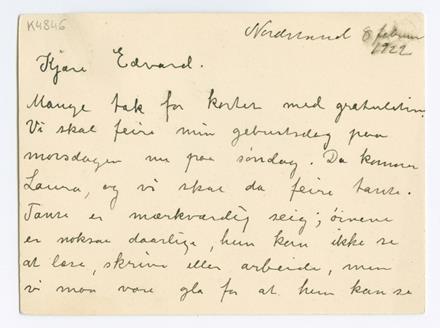 K4846
Nordstrand 8 februar
1922
Kjære Edvard.
Mange tak for kortet med gratulation.
Vi skal feire min geburtsdag paa
morsdagen nu paa søndag. Da kommer
Laura, og vi skal da feire tante.
Tante er mærkværdig seig; öinene
er noksaa daarlige, hun kan ikke se
at læse, skrive eller arbeide, men
vi maa være gla for at hun kan se